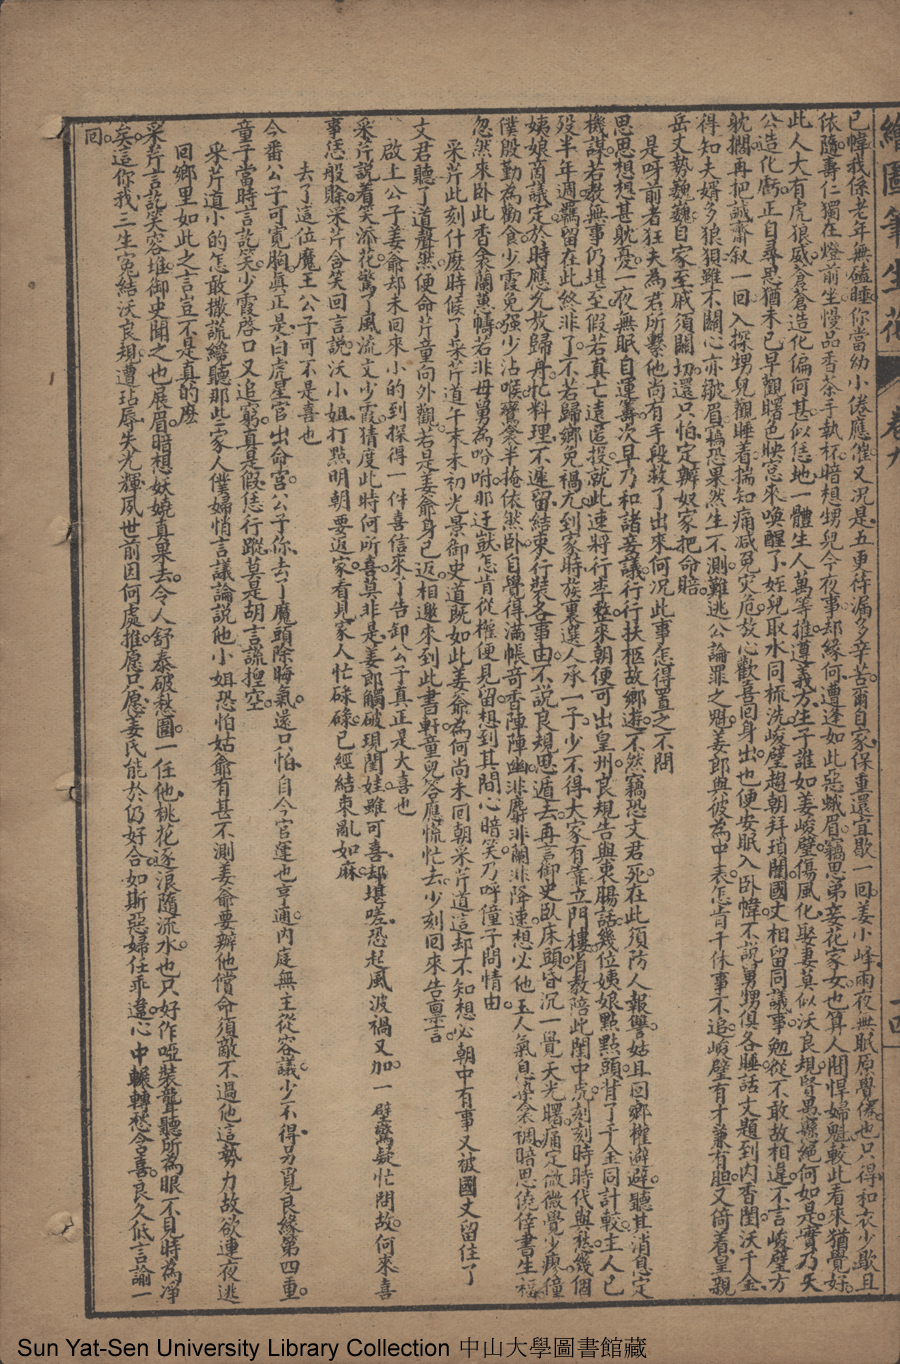 繪圖筆生花 卷九 十四
已幃我係老年無磕睡你當幼小倦應催又況是五更待漏多辛苦爾自家保重還宜歇一回姜小峰雨夜無眠原覺倦也只得和衣少歇且
依隨壽仁獨在燈前坐慢品香茶手執杯暗想甥兒今夜事却緣何遭逢如此惡蛾眉竊思弟妾花家女也算人間悍婦魁較此看來猶覺好
此人大有虎狼威蒼蒼造化偏何甚似恁地一體生人萬等推遵義方生子誰如姜峻壁傷風化娶妻莫似沃良規賢愚懸絕何如是實乃天
公造化虧正自尋思猶未已早觀曙色映窓來喚醒了姪兒取水同梳洗峻壁趨朝拜瑣闈國丈相留同議事勉從不敢故相違不言峻壁方
躭擱再把誠齋叙一回入探甥兒觀睡着揣知痛減免灾危放心歡喜回身出也便安眠入卧幃不說男甥俱各睡話文題到內香閨沃千金
得知夫婿多狼狽雖不關心亦皺眉竊恐果然生不測難逃公論罪之魁姜郎與彼為中表怎肯干休事不追峻壁有才兼有胆又倚着皇親
岳丈勢巍巍自家至戚須關切還只怕定辦奴家把命賠
是呀前者狂夫為君所繫他尚有手段救了出來何況此事怎得置之不問
思思想想甚躭憂一夜無眠自運籌次早乃和諸妾議行行扶柩故鄉遊不然竊恐文君死在此須防人報讐姑且回鄉權避避聽其消息定
機謀若教無事仍堪至假若真亡遠匿投就此速將行李整來朝便可出皇州良規告與衷腸話幾位姨娘點點頭甘了千金同計較主人已
歿半年週羈留在此終非了不若歸鄉免禍尤到家時族裏選人承一子少不得大家有靠立門樓省教陪此閨中虎刻刻時時代與愁幾個
姨娘商議定於時應允放歸舟忙料理不遲留結束行裝各事由不說良規思遁去再言御史臥床頭昏沉一覺天光曙痛定微微覺少瘳僮
僕殷勤為勸食少霞免强少沾喉鴛衾半掩依然卧自覺得滿帳奇香陣陣幽非麝非蘭非降速想必他玉人氣息染衾裯暗思僥倖書生福
忽然來卧此香衾蘭蕙幬若非母舅為吩咐那迂獃怎肯從權便見留想到其間心暗笑乃呼僮子問情由
采芹此刻什麽時候了采芹道午末未初光景御史道既如此姜爺為何尚未回朝采芹道這却不知想必朝中有事又被國丈留住了
文君聽了道聲然便命芹童向外觀若是姜爺身已返相邀來到此書軒童兒答應慌忙去少刻回來告稟言
啟上公子姜爺却未回來小的到探得一件喜信來了告知公子真正是大喜也
采芹說着笑添花驚了風流文少霞猜度此時何所喜莫非是姜郎觸破現閨娃雖可喜却堪嗟恐起風波禍又加一壁驚疑忙問故何來喜
事恁般賒采芹含笑回言說沃小姐打點明朝要返家看見家人忙碌碌已經結束亂如麻
去了這位魔王公子可不是喜也
今番公子可寬胸真正是白虎星官出命宮公子你去了魔頭除晦氣還只怕自今官運也亨通內庭無主從容議少不得另覓良緣第四重
童子當時言訖笑少霞啓口又追窮真是假恁行蹤莫是胡言謊捏空
采芹道小的怎敢撒謊纔聽那些家人僕婦悄言議論說他小姐恐怕姑爺有甚不測姜爺要辦他償命須敵不過他這勢力故欲連夜逃
回鄉里如此之言豈不是真的麽
采芹言訖笑容堆御史聞之也展眉暗想妖嬈真果去令人舒泰破愁圍一任他桃花逐浪隨流水也只好作啞裝聾聽所為眼不見時為凈
矣這你我三生寃結沃良規遭玷辱失光輝夙世前因何處推愿只愿姜氏能於仍好合如斯惡婦任乖違心中輾轉愁含喜良久低言諭一
回
Sun Yat-Sen University Library Collection 中山大學圖書館藏